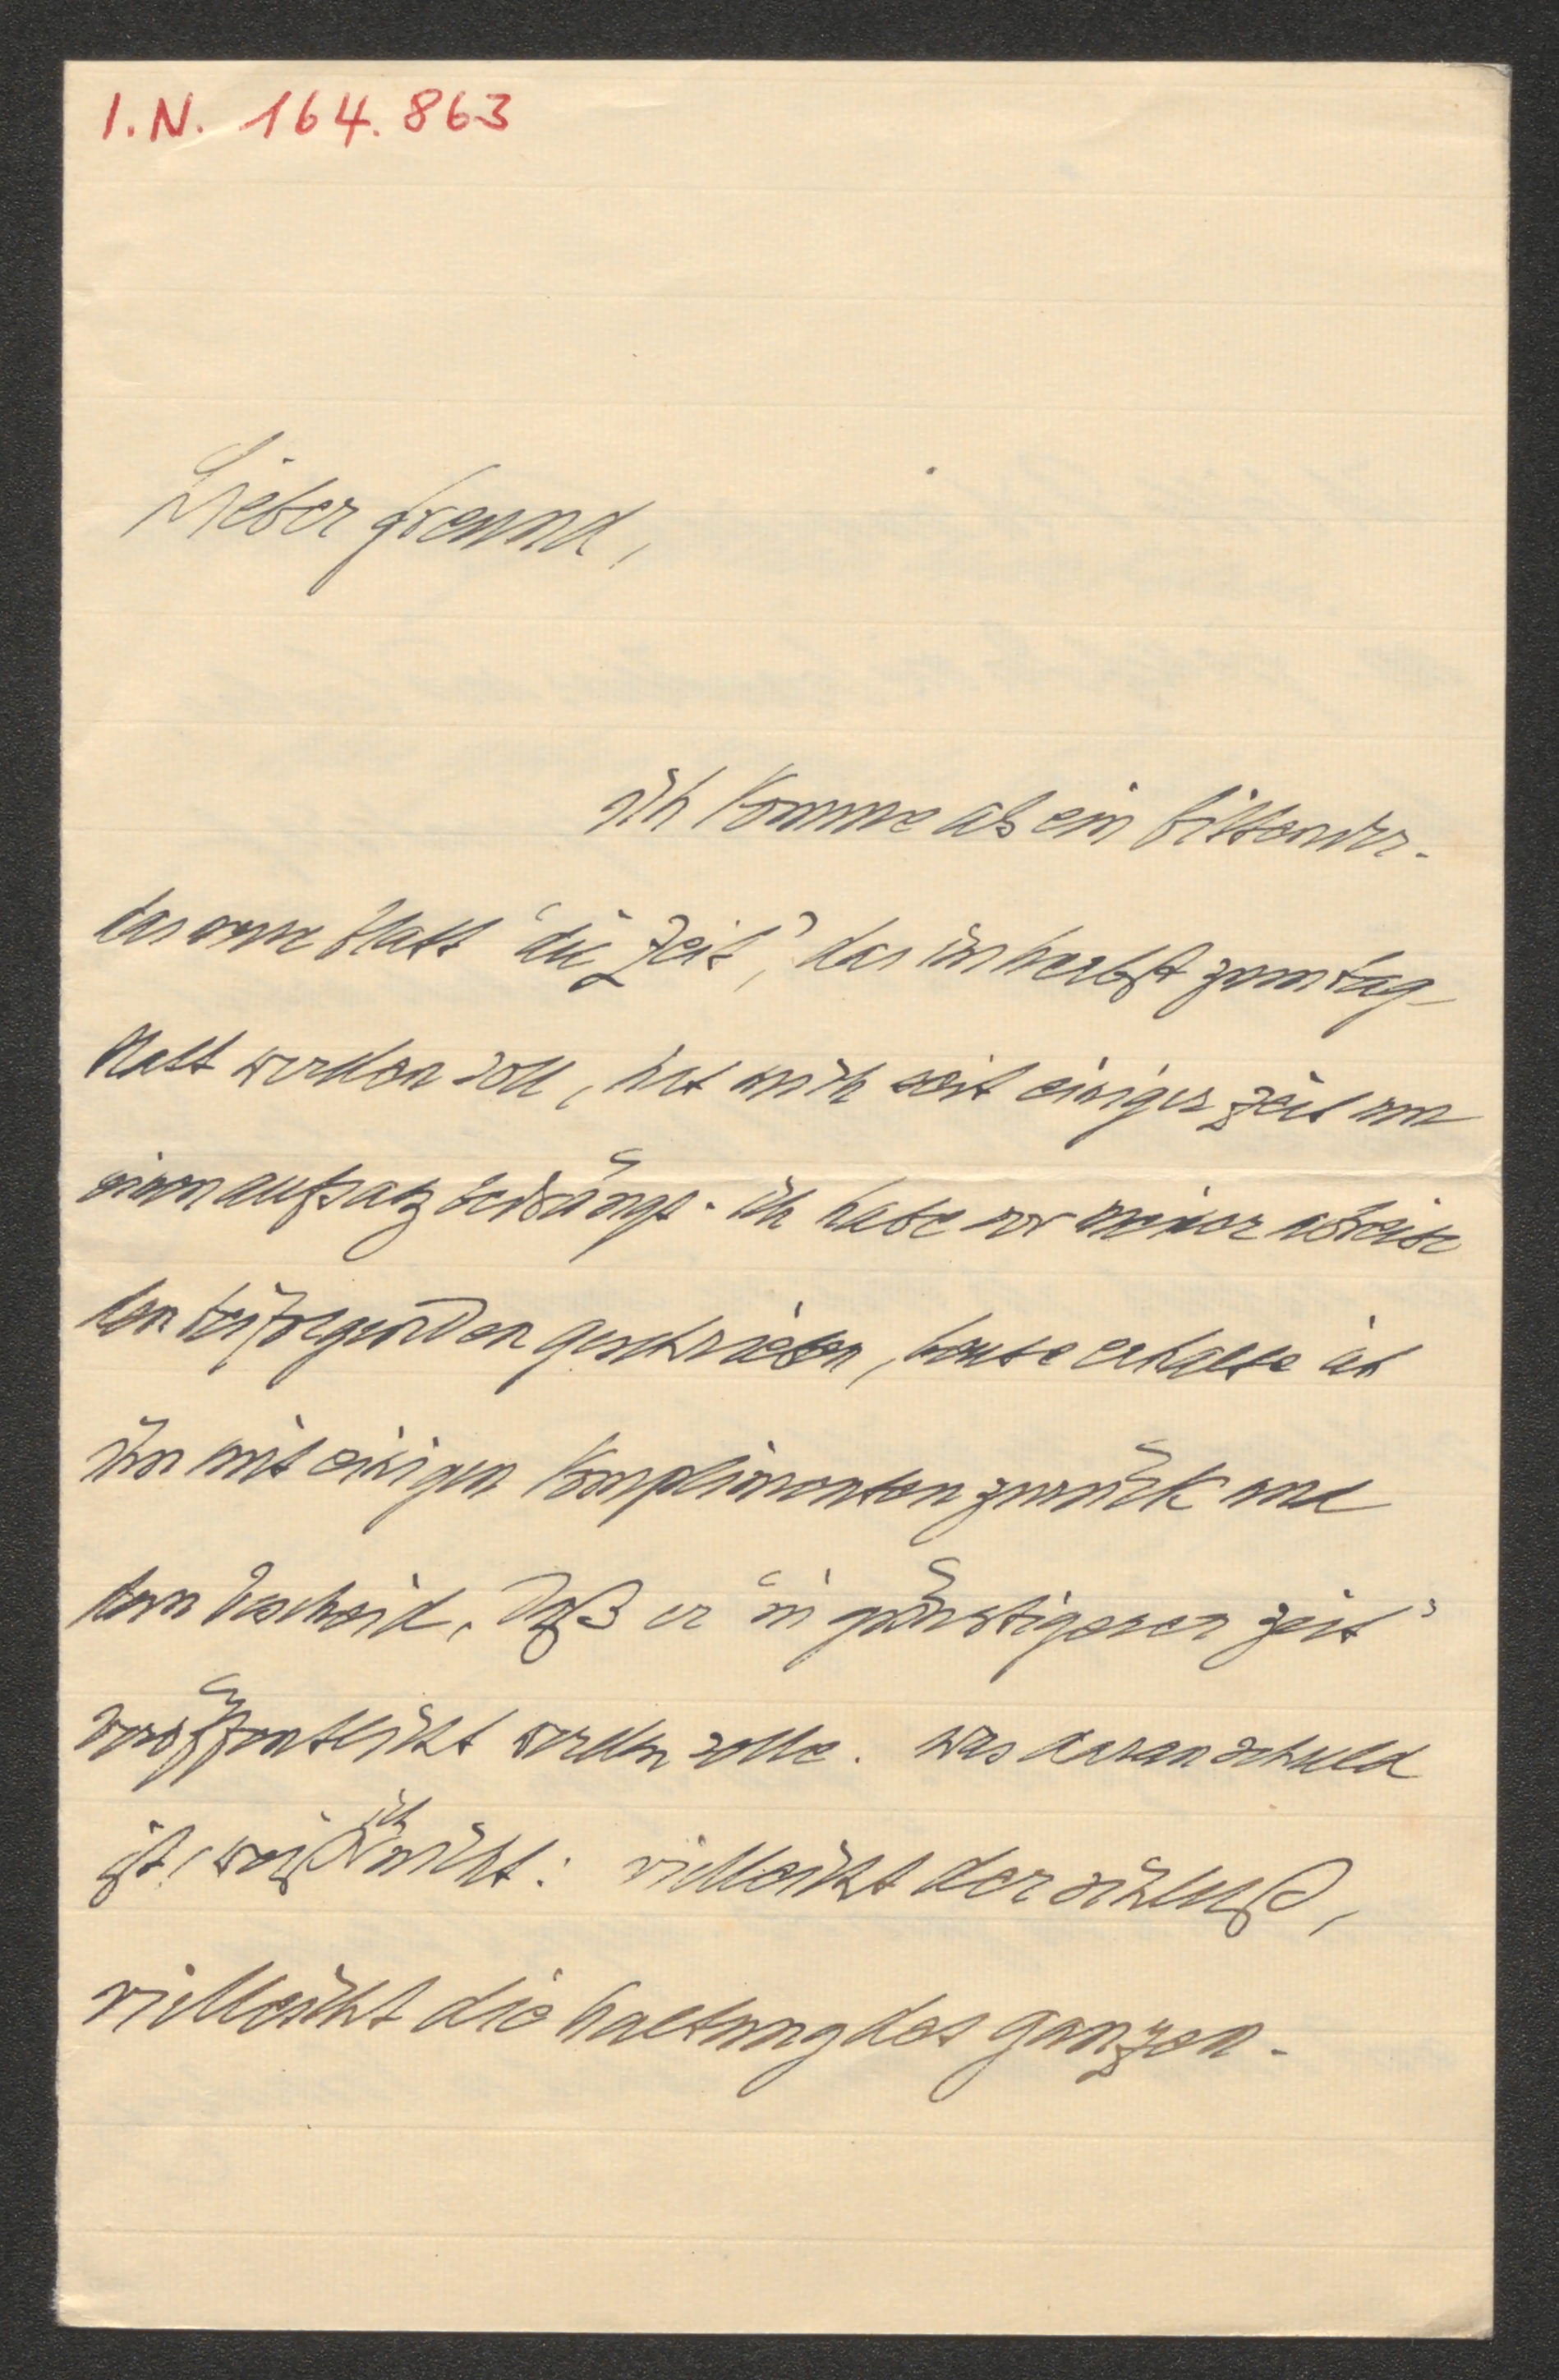 I.N. 164.863
Lieber freund,
ich komme als ein bittender.
das arme blatt "die Zeit", das im herbst zum tag-
blatt werden soll, hat mich seit einiger zeit um
einen aufsatz bedrängt. ich habe vor meiner abreise
den beifolgenden geschrieben, heute erhalte ich
ihn mit einigen komplimenten zurück und
dem bescheid, daß er "in günstigerer zeit"
veröffentlicht werden solle. was daran schuld
ist, weiß ich nicht: vielleicht der schluß,
vielleicht die haltung des ganzen.